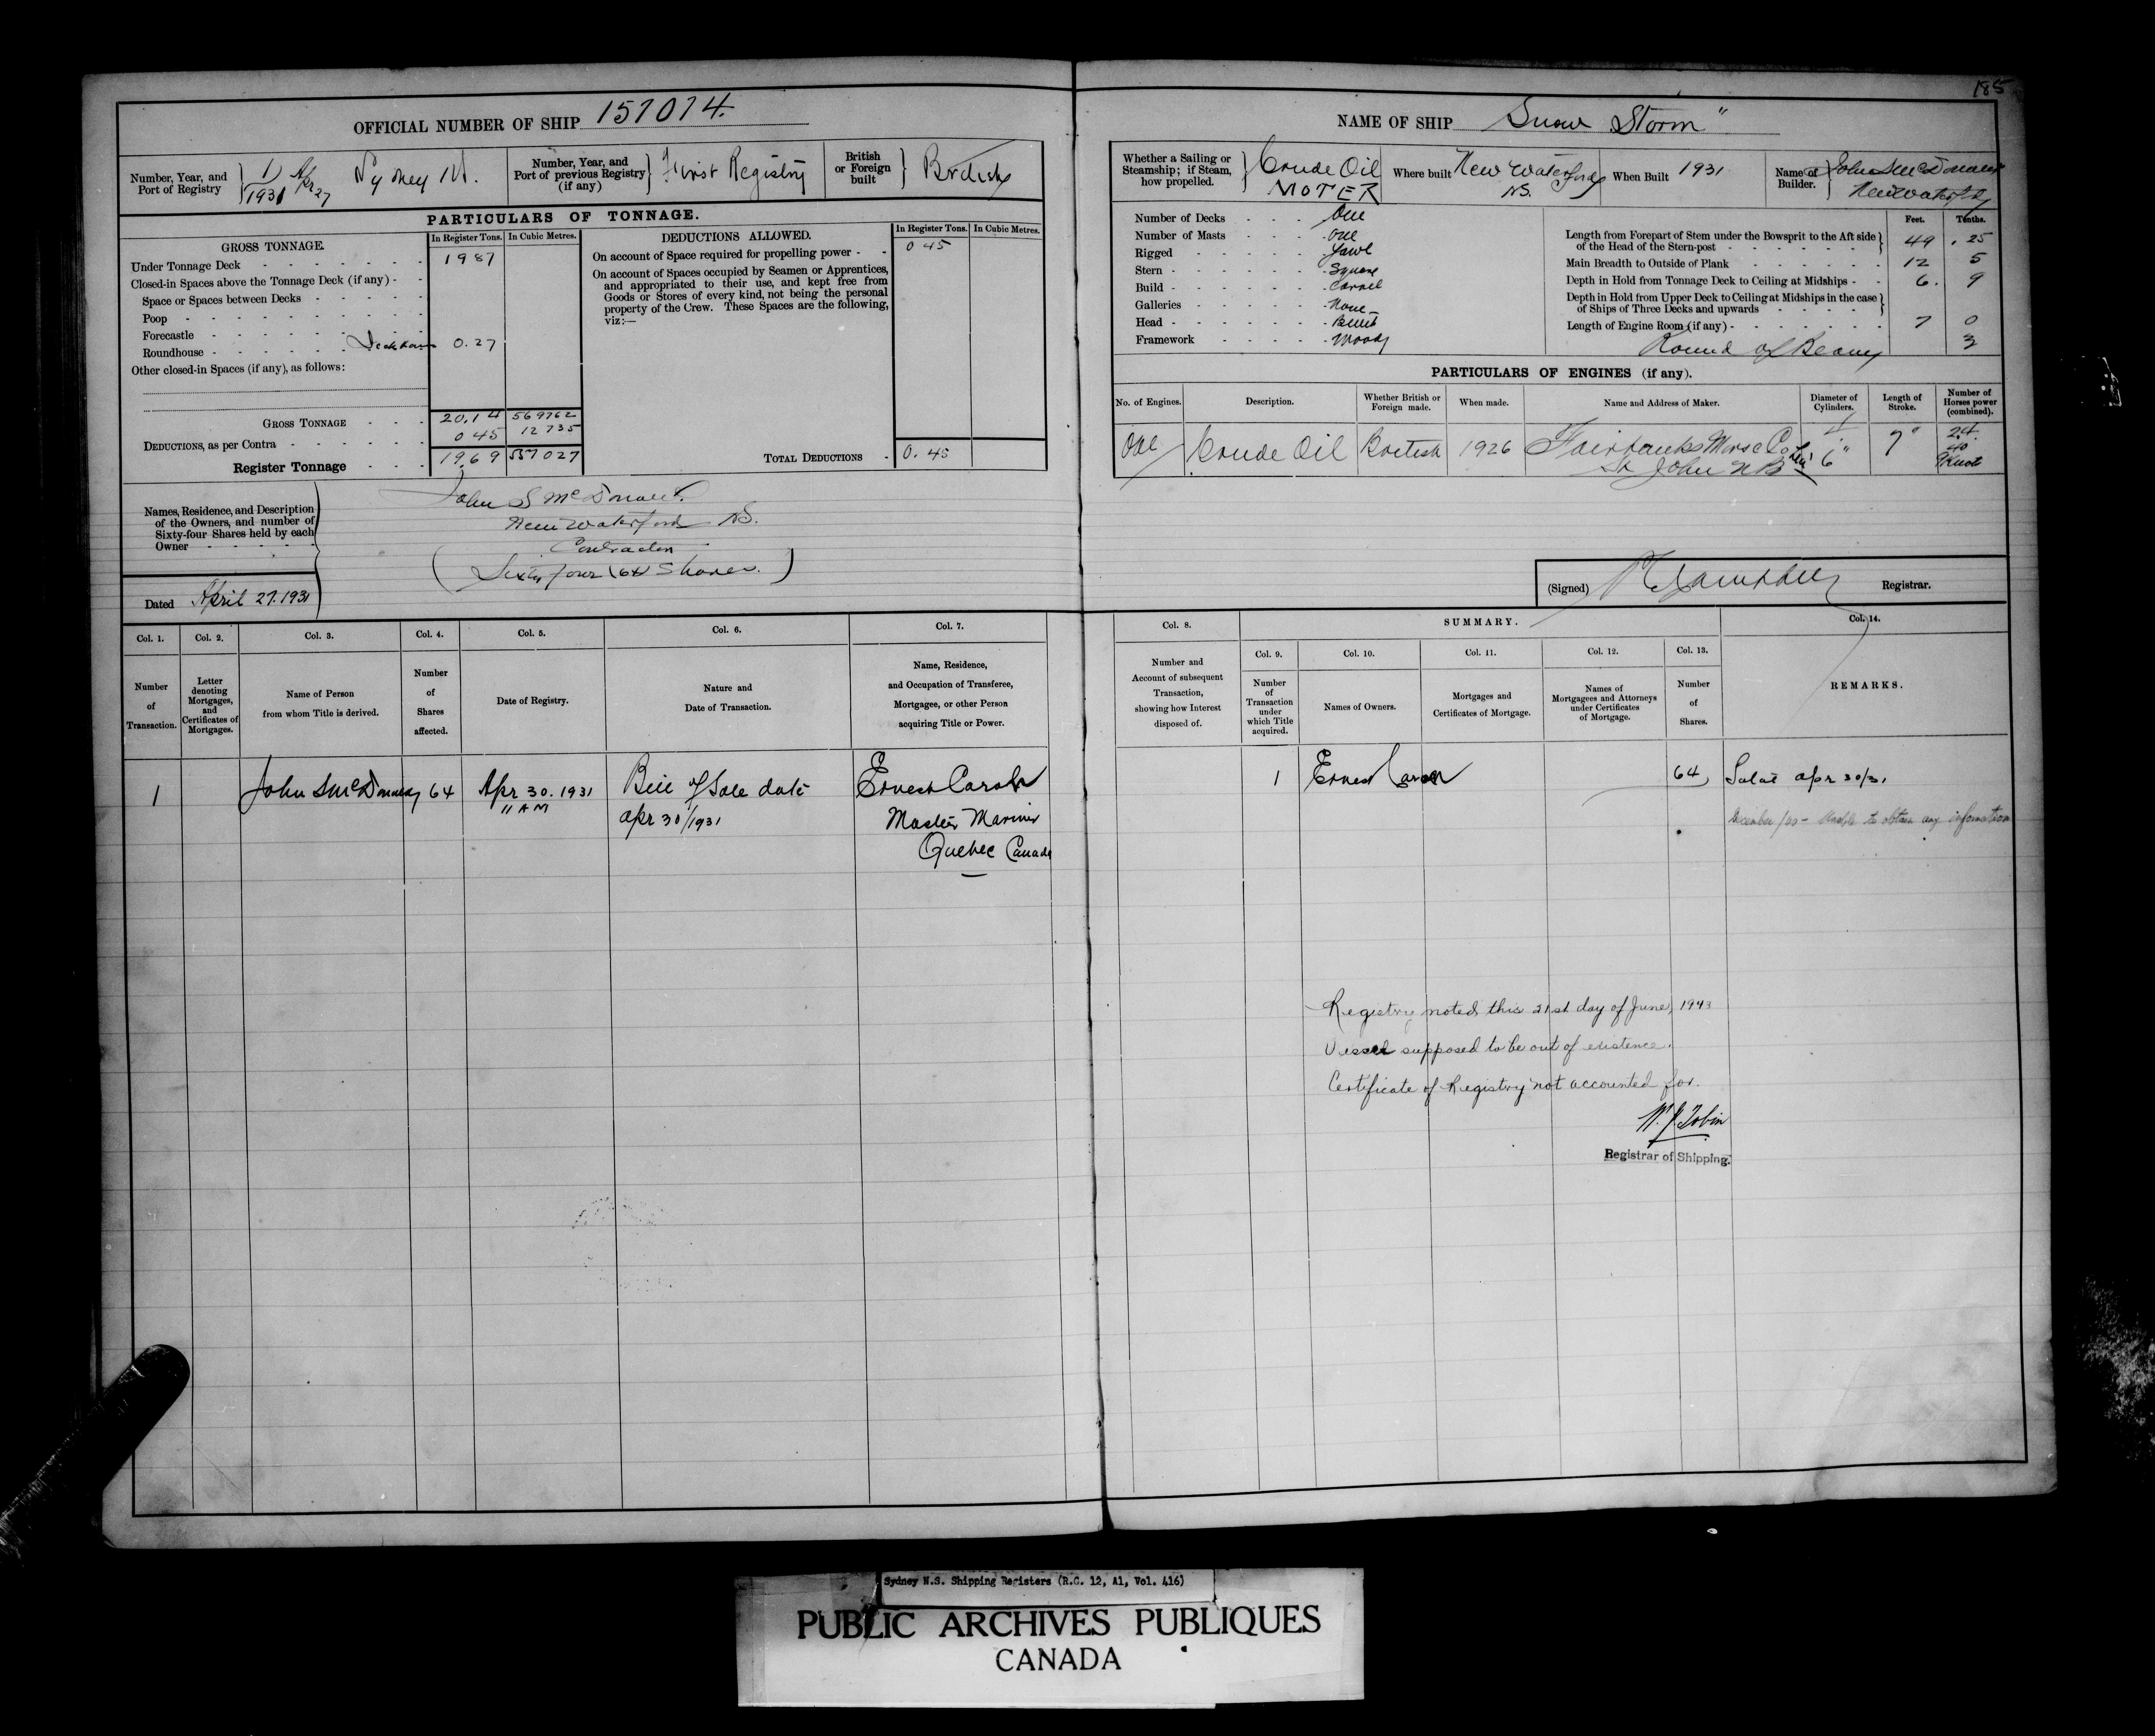 185
OFFICIAL NUMBER OF SHIP 157074.
NAME OF SHIP Snow Storm"
Number, Year, and Port of Registry 1/1931 Apr 27 Sydney N.S.
Number, Year, and Port of previous Registry (if any) First Registry
British or Foreign built British
PARTICULARS OF TONNAGE.
GROSS TONNAGE. In Register Tons. In Cubic Metres.
Under Tonnage Deck 19 87
Closed-in Spaces above the Tonnage Deck (if any)
Space or Spaces between Decks
Poop
Forecastle
Roundhouse 0.27
Other closed-in Spaces (if any), as follows:
GROSS TONNAGE 20.14 569762
DEDUCTIONS, as per Contra 0 45 12 735
Register Tonnage 19.69 557 027
DEDUCTIONS ALLOWED. In Register Tons. In Cubic Metres.
On account of Space required for propelling power 0 45
On account of Spaces occupied by Seamen or Apprentices,
and appropriated to their use, and kept free from
Goods or Stores of every kind, not being the personal
property of the Crew. These Spaces are the following,
viz:—
TOTAL DEDUCTIONS 0.45
Names, Residence, and Description
of the Owners, and number of
Sixty-four Shares held by each
Owner
John S McDonald
New Waterford N.S.
Contractor
(Sixty four (64) Shares.)
Dated April 27. 1931
Whether a Sailing or Steamship; if Steam, how propelled. Crude Oil MOTER
Where built New Waterford NS.
When Built 1931
Name of Builder. John S McDonald New Waterford
Number of Decks One
Number of Masts One
Rigged Yawl
Stern Square
Build Carvel
Galleries None
Head
Framework Wood
Feet. Tenths.
Length from Forepart of Stem under the Bowsprit to the Aft side of the Head of the Stern-post 49 .25
Main Breadth to Outside of Plank 12 5
Depth in Hold from Tonnage Deck to Ceiling at Midships 6. 9
Depth in Hold from Upper Deck to Ceiling at Midships in the case of Ships of Three Decks and upwards
Length of Engine Room (if any) 7 0
Round of Beam 3
PARTICULARS OF ENGINES (if any).
No. of Engines. Description. Whether British or Foreign made. When made. Name and Address of Maker. Diameter of Cylinders. Length of Stroke. Number of Horses power (combined).
One Crude Oil British 1926 Fairbanks Morse Co St John N B 6" 7" 24
40
9 Knot
(Signed) Registrar.
Col. 1. Col. 2. Col. 3. Col. 4. Col. 5. Col. 6. Col. 7.
Number of Transaction.
Letter denoting Mortgages, and Certificates of Mortgages.
Name of Person from whom Title is derived.
Number of Shares affected.
Date of Registry.
Nature and Date of Transaction.
Name, Residence, and Occupation of Transferee, Mortgagee, or other Person acquiring Title or Power.
Col. 8. SUMMARY. Col. 14.
Col. 9. Col. 10. Col. 11. Col. 12. Col. 13.
Number and Account of subsequent Transaction, showing how Interest disposed of.
Number of Transaction under which Title acquired.
Names of Owners.
Mortgages and Certificates of Mortgage.
Names of Mortgagees and Attorneys under Certificates of Mortgage.
Number of Shares.
REMARKS.
1 John S McDonald 64 Apr 30. 1931 Bill of Sale date Ernest Caron
11 AM apr 30/1931 Master Mariner
Quebec Canada
1 Ernest Caron 64 apr 30/31
December / - Unable to obtain any information
Registry noted this 21st day of June, 1943
Vessel supposed to be out of existence.
Certificate of Registry not accounted for.
W. J. Tobin
Registrar of Shipping.
Sydney N.S. Shipping Registers (R.G. 12, A1, Vol. 416)
PUBLIC ARCHIVES PUBLIQUES
CANADA